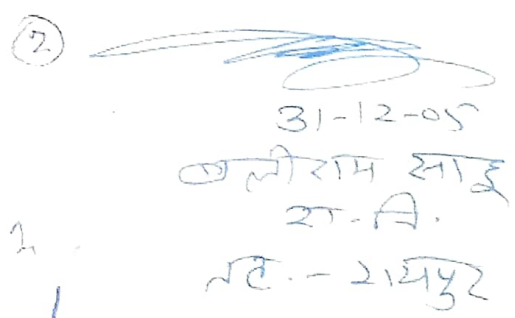 2
31-12-05
बलीराम साहू
रा. नि.
तह. - रायपुर